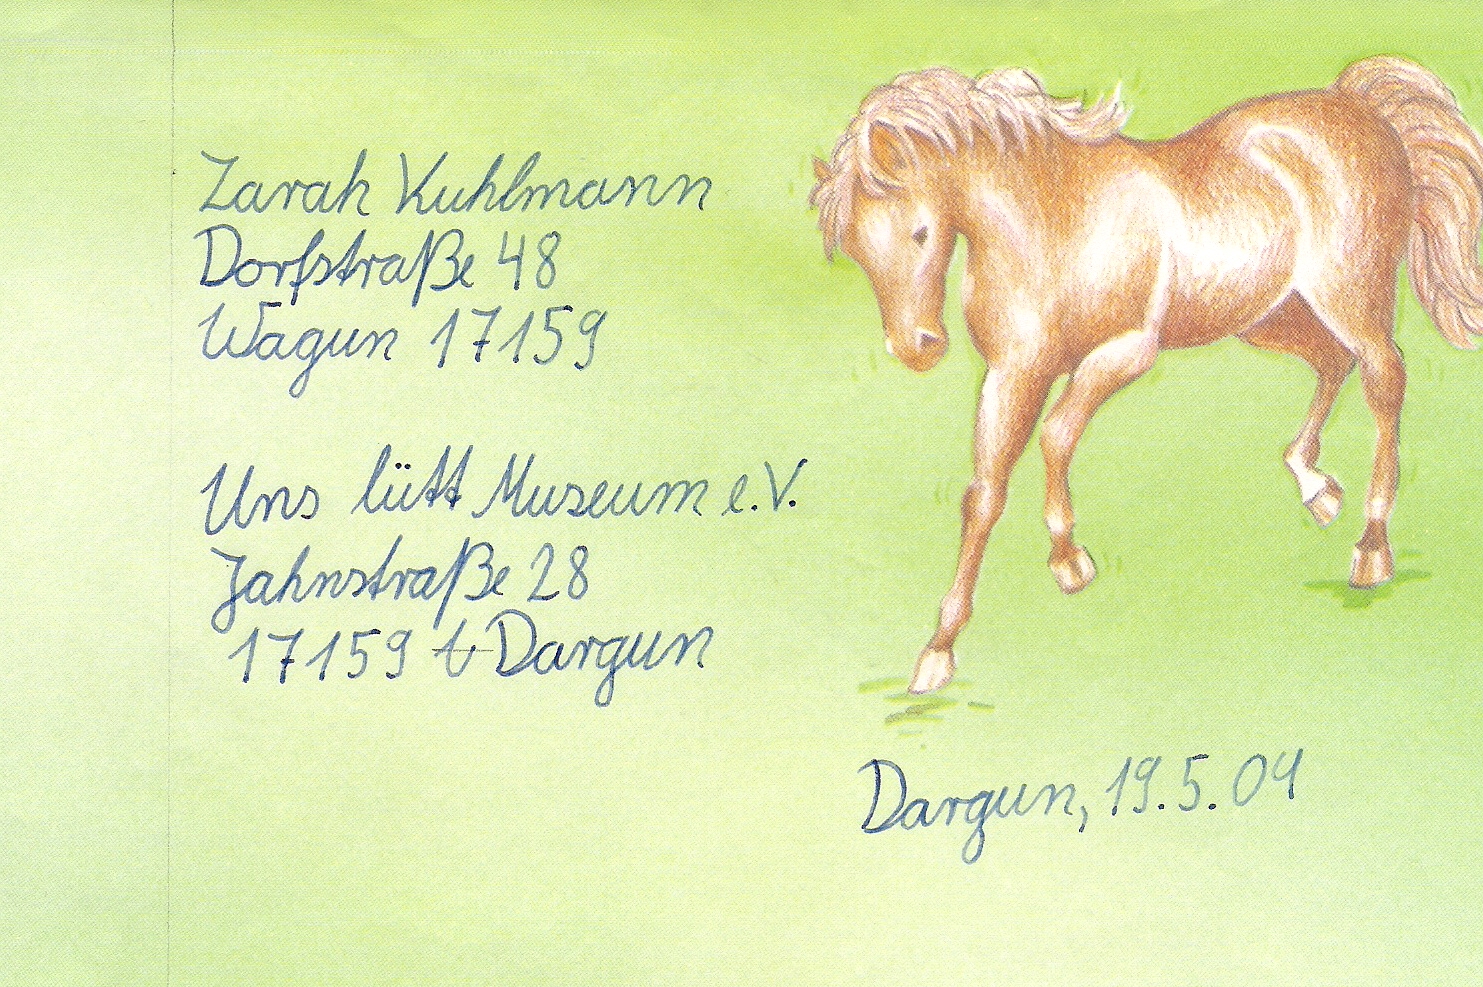 Zarah Kuhlmann
Dorfstraße 48
Wagun 17159
Uns lütt Museum e.V.
Jahnstraße 28
17159 Dargun
Dargun, 19.5.04